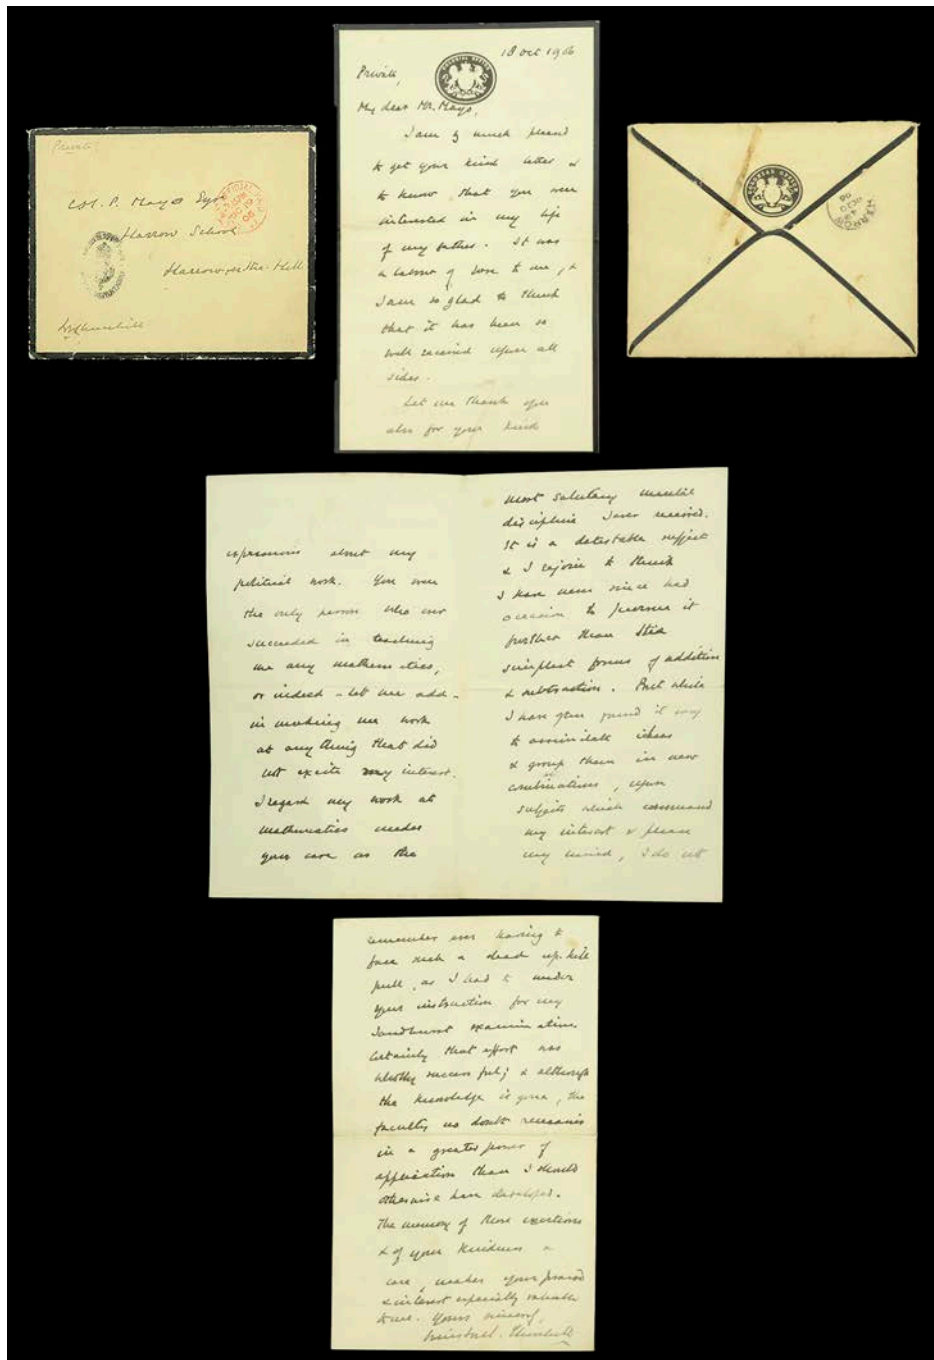 Private
C.H.P. Mayo Esqre
Harrow School
Harrow-on-the-Hill
WSChurchill
OFFICIAL PAID
COLONIAL OFFICE
HARROW
18 Oct 1906
Private,
COLONIAL OFFICE
My dear Mr. Mayo,
I am so much pleased
to get your kind letter &
to know that you were
interested in my life
of my father. It was
a labour of love to me, &
I am so glad to think
that it has been so
well received upon all
sides.
Let me thank you
also for your kind
expressions about my
political work. You were
the only person who ever
succeeded in teaching
me any mathematics,
or indeed - let me add -
in making me work
at anything that did
not excite my interest.
I regard my work at
mathematics under
your care as the
most salutary mental
discipline I ever received.
It is a detestable subject
& I rejoice to think
I have never since had
occasion to pursue it
further than the
simplest forms of addition
& subtraction. But while
I have often found it easy
to assimilate ideas
& group them in new
combinations, upon
subjects which command
my interest & please
my mind, I do not
remember ever having to
face such a dead up-hill
pull, as I had to under
your instruction for my
Sandhurst examination.
Certainly that effort was
wholly successful; & although
the knowledge is gone, the
faculty no doubt remains
in a greater power of
application than I should
otherwise have developed.
The memory of those exertions
& of your kindness &
care, makes your
& interest especially valuable
to me. Yours sincerely,
Winston S. Churchill